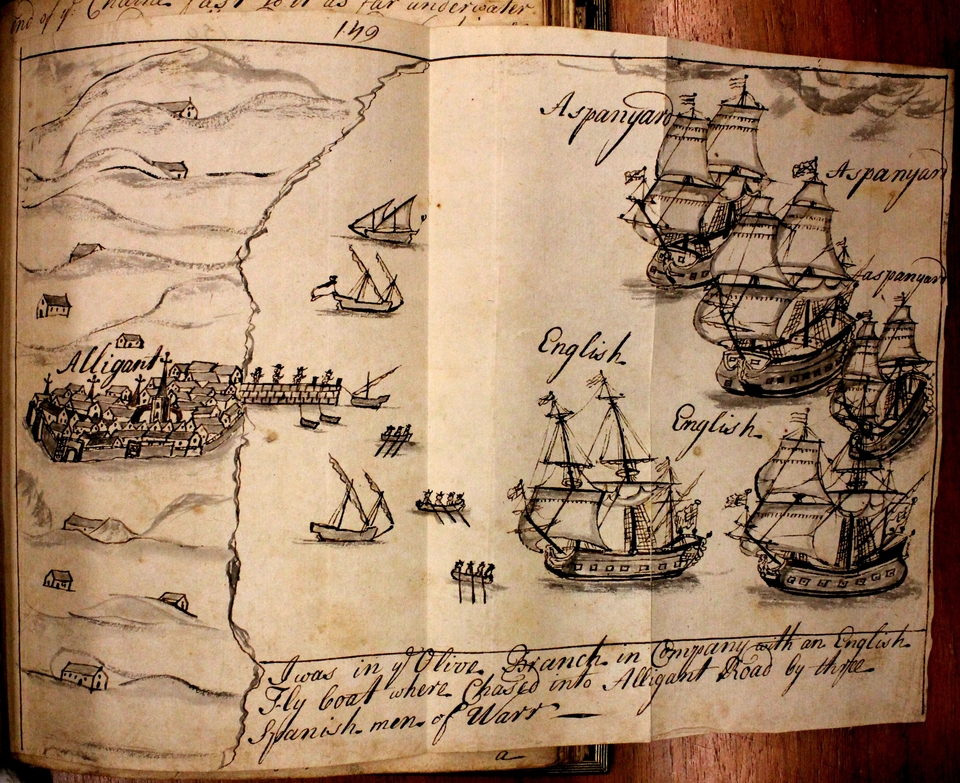 end of yͤ Chaine fast to it as far underwater
149
Aspanyard
Aspanyard
aspanyard
Alligant
English
English
I was in yͤ Olive Branch in Company with an English
Fly boat where Chased into Alligant Road by three
Spanish men of Warr
a